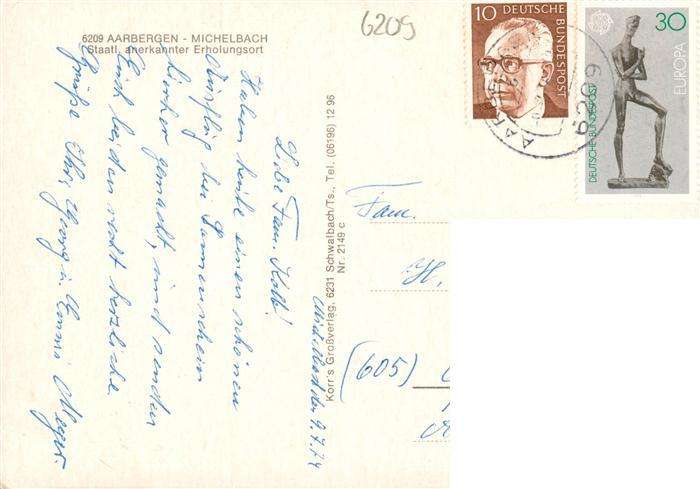 6209 AARBERGEN - MICHELBACH
Staatl. anerkannter Erholungsort
6209
10 DEUTSCHE BUNDESPOST
30 EUROPA
DEUTSCHE BUNDESPOST
AAR
6209
Michelbach den 9.7.74
Liebe Fam. Kolb!
Haben heute einen schönen
Ausflug bei Sonnenschein
hierher gemacht, und senden
Euch beiden recht herzliche
Grüße Ihr Georg u. Emmi Meyer.
Korr's Großverlag, 6231 Schwalbach/Ts., Tel. (06196) 12 96
Nr. 2149 c
Fam.
H.
(605)